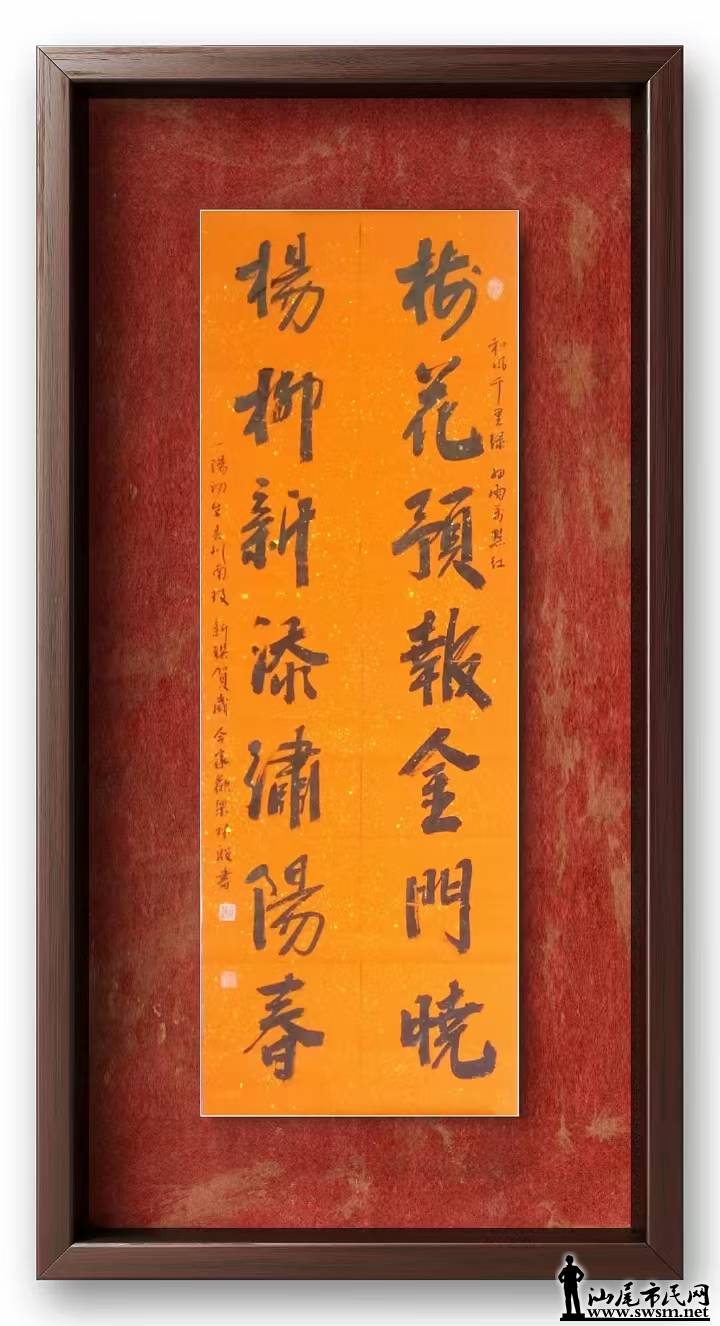 梅花預報金門曉
和風千里綠 細雨萬點紅
楊柳新添繡陽春
一陽初生 南枝新 賀歲 書
汕尾市民网
www.swsm.net